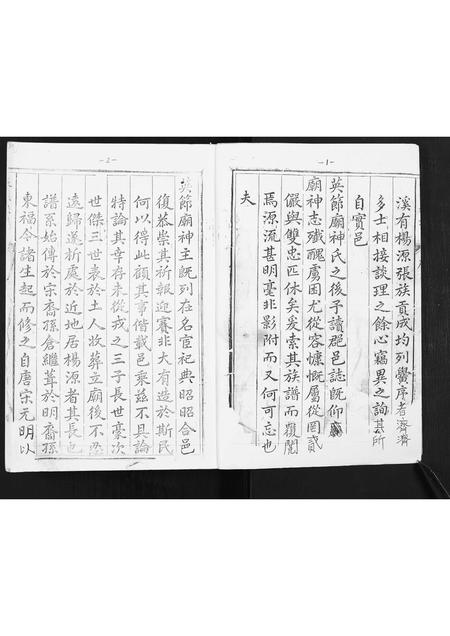 -1-
溪有楊源張族貢成均列黌序者濟濟
多士相接談理之餘心竊異之詢其所
自實邑
英節廟神氏之後予讀郡邑誌既仰
廟神志殲醜虜困尤從容慷慨屬從罔貳
儼與雙忠匹休矣爰索其族譜而復閱
焉源流甚明毫非影附而又何可忘也
夫
-2-
英節廟神主既列在名宦祀典昭昭合邑
復恭崇其祈報迎賽非大有造於斯民
何以得此顧其事偕載邑乘茲不具論
特論其幸存未從戎之三子長世豪次
世傑三世表於土人收葬立廟後不忍
遠歸遂析處於近地居楊源者其長也
譜系始傳於宗裔孫倉繼葺於明裔孫
東福今諸生起而修之自唐宋元明以